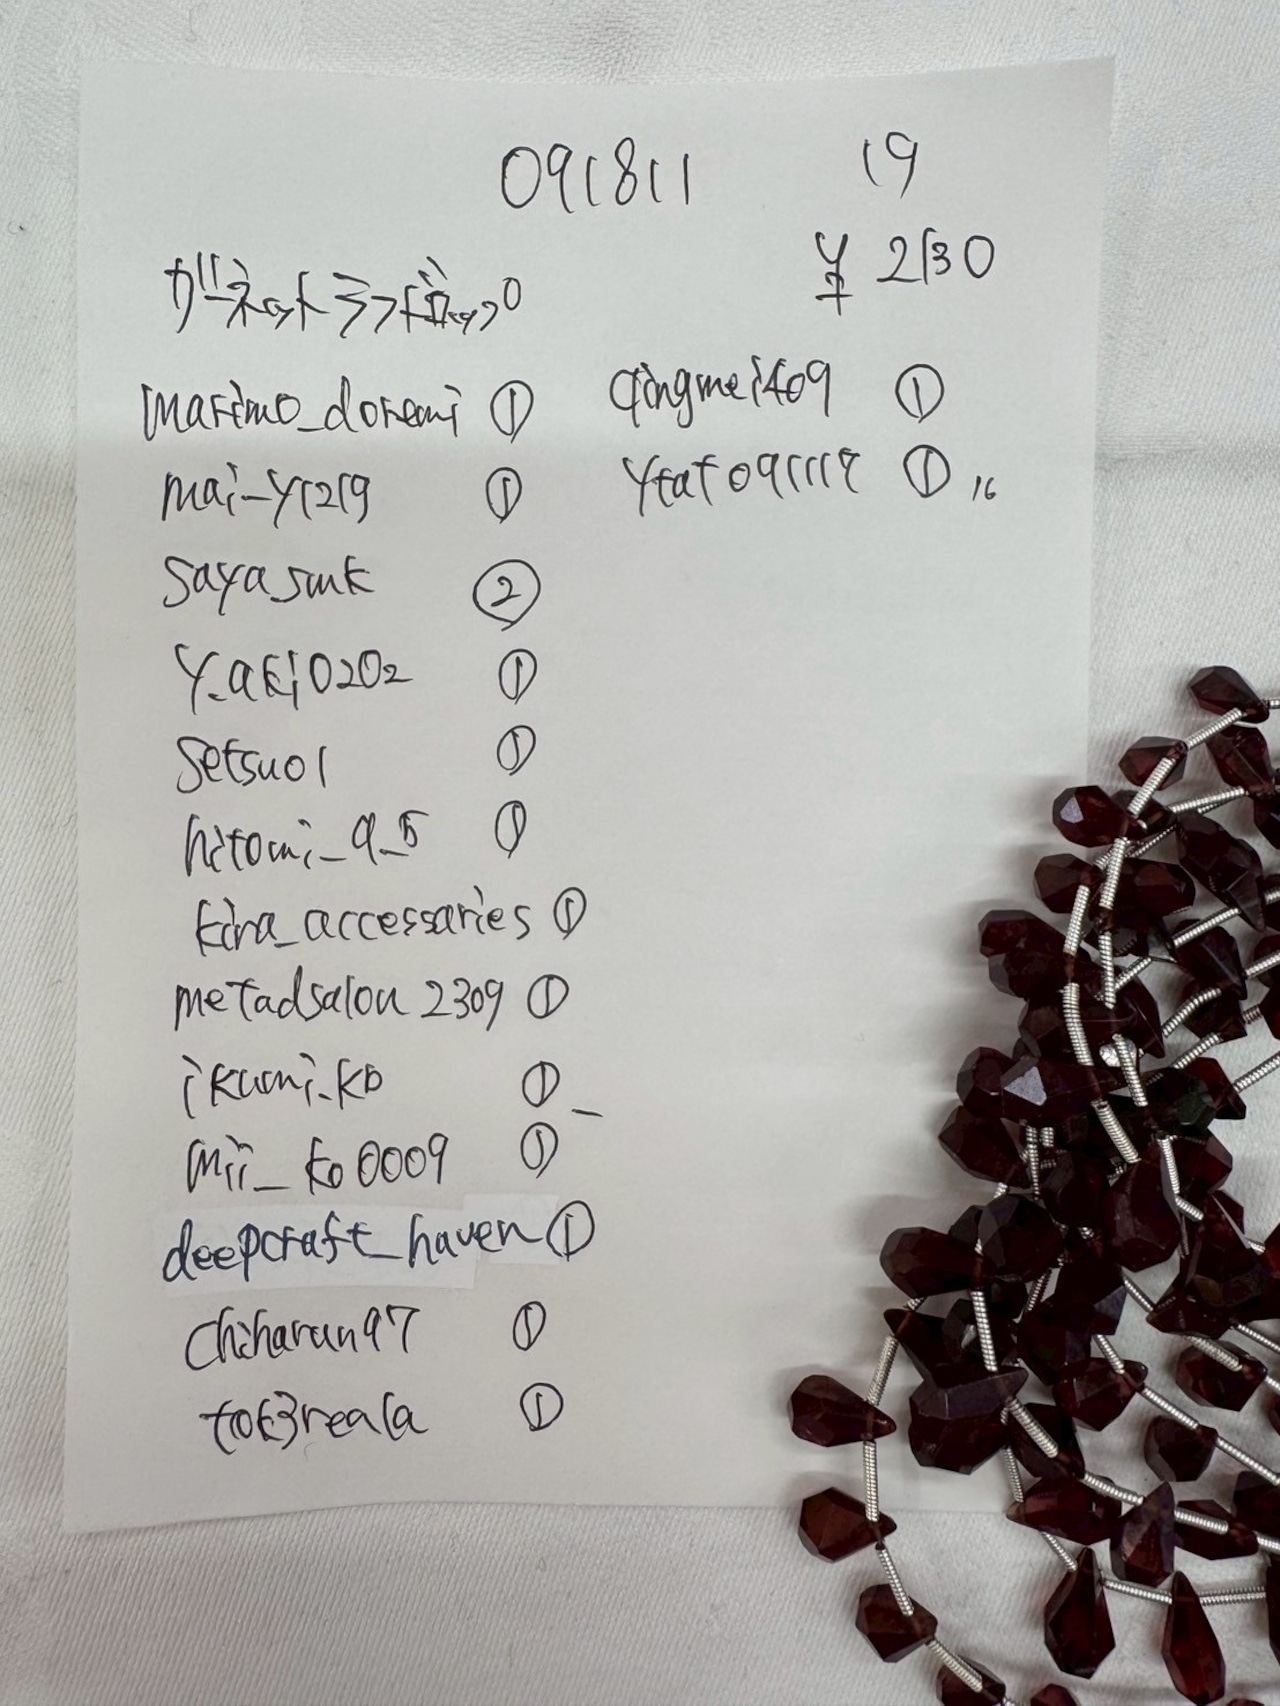 091811 19
¥ 2130
ガーネットラフドロップ
marimo_doremi ①
mai-y1219 ①
sayasmk ②
y_aki0202 ①
setsu01 ①
hitomi_9_5 ①
kira_accessaries ①
metadsalon2309 ①
ikumi.ko ①
mii_ko0009 ①
deepcraft_haven ①
chiharun97 ①
①
qingmei409 ①
① 16